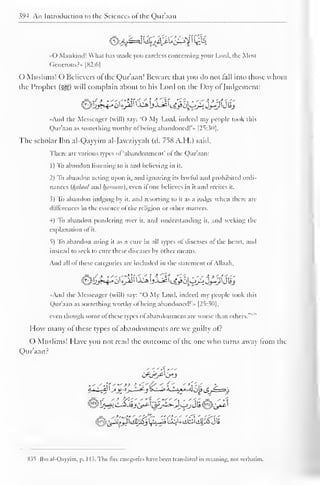 394 An Introduction to the Sciences of the Qur'aan
يَا أَيُّهَا الْإِنسَانُ مَا غَرَّكَ بِرَبِّكَ الْكَرِيمِ
«O Mankind! What has made you careless concerning your Lord, the Most
Generous?» [82:6]
O Muslims! O Believers of the Qur'aan! Beware that you do not fall into those whom
the Prophet (ﷺ) will complain about to his Lord on the Day of Judgement:
وَقَالَ الرَّسُولُ يَا رَبِّ إِنَّ قَوْمِي اتَّخَذُوا هَٰذَا الْقُرْآنَ مَهْجُورًا
«And the Messenger (will) say: 'O My Lord, indeed my people took this
Qur'aan as something worthy of being abandoned!'» [25:30].
The scholar Ibn al-Qayyim al-Jawziyyah (d. 758 A.H.) said,
There are various types of 'abandonment' of the Qur'aan:
1) To abandon listening to it and believing in it.
2) To abandon acting upon it, and ignoring its lawful and prohibited ordi-
nances (halaal and haraam), even if one believes in it and recites it.
3) To abandon judging by it, and resorting to it as a judge when there are
differences in the essence of the religion or other matters.
4) To abandon pondering over it, and understanding it, and seeking the
explanation of it.
5) To abandon using it as a cure in all types of diseases of the heart, and
instead to seek to cure these diseases by other means.
And all of these categories are included in the statement of Allaah,
وَقَالَ الرَّسُولُ يَا رَبِّ إِنَّ قَوْمِي اتَّخَذُوا هَٰذَا الْقُرْآنَ مَهْجُورًا
«And the Messenger (will) say: 'O My Lord, indeed my people took this
Qur'aan as something worthy of being abandoned!'» [25:30],
even though some of these types of abandonment are worse than others."
How many of these types of abandonments are we guilty of?
O Muslims! Have you not read the outcome of the one who turns away from the
Qur'aan?
وَمَنْ أَعْرَضَ
عَن ذِكْرِي فَإِنَّ لَهُ مَعِيشَةً ضَنكًا وَنَحْشُرُهُ يَوْمَ الْقِيَامَةِ
أَعْمَىٰ قَالَ رَبِّ لِمَ حَشَرْتَنِي أَعْمَىٰ وَقَدْ كُنتُ بَصِيرًا
قَالَ كَذَٰلِكَ أَتَتْكَ آيَاتُنَا فَنَسِيتَهَا وَكَذَٰلِكَ الْيَوْمَ تُنسَىٰ
835 Ibn al-Qayyim, p. 113. The five categories have been translated in meaning, not verbatim.